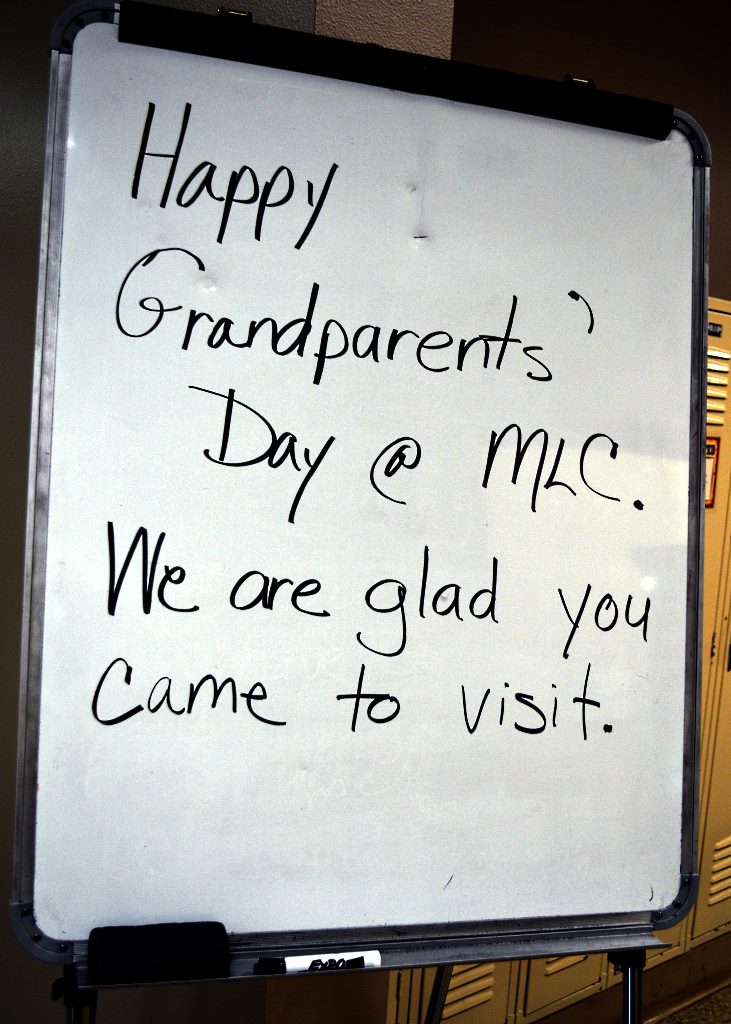 Happy
Grandparents'
Day @ MLC.
We are glad you
came to visit.
EXPO